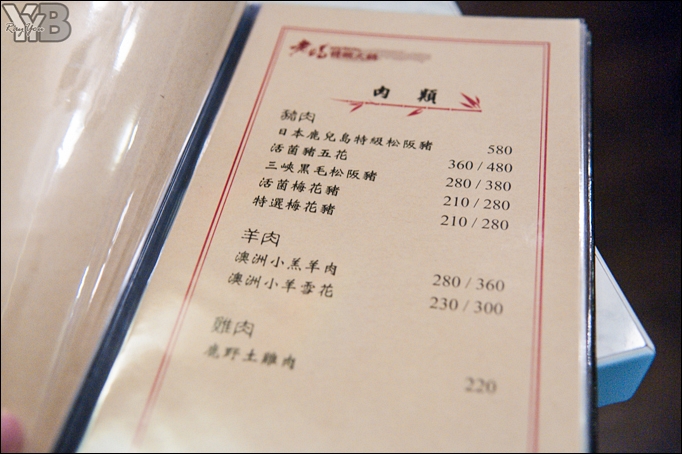 YYB
肉類
豬肉
日本鹿兒島特級松阪豬 580
活菌豬五花 360 / 480
三峽黑毛松阪豬 280 / 380
活菌梅花豬 210 / 280
特選梅花豬 210 / 280
羊肉
澳洲小羔羊肉 280 / 360
澳洲小羊雪花 230 / 300
雞肉
鹿野土雞肉 220